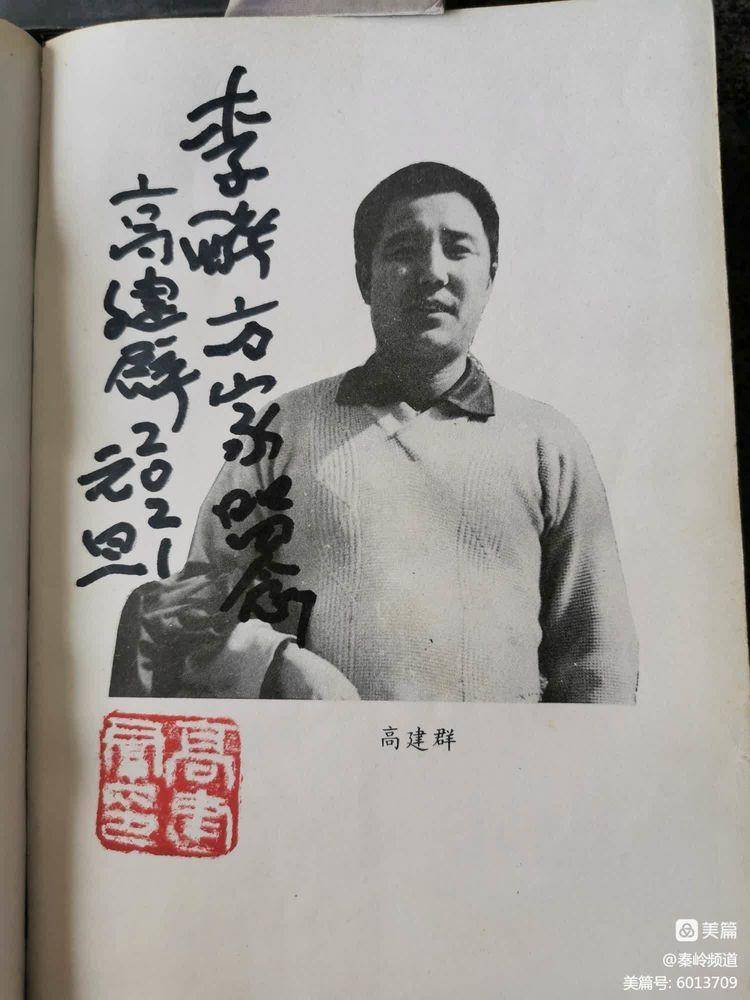 李 方家留念
高建群2021
元旦
高建群印
高建群
美篇
@秦岭频道
美篇号: 6013709